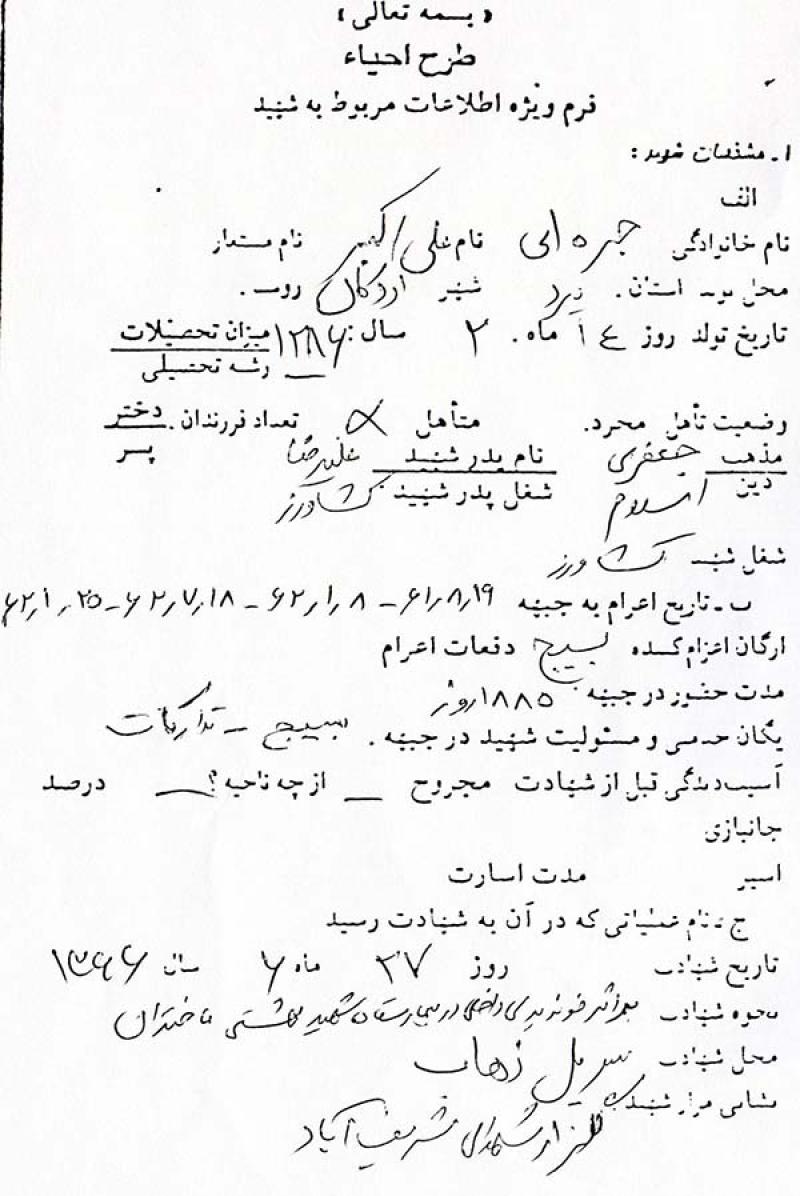 «بسمه تعالی»
طرح احیاء
فرم ویژه اطلاعات مربوط به شهید
۱ـ مشخصات شهید:
الف
نام خانوادگی جبره ای نام علی اکبر نام مستعار
محل تولد استان. یزد شهر اردکان روستا.
تاریخ تولد روز ماه. ۲ سال: میزان تحصیلات
رشته تحصیلی
وضعیت تأهل مجرد. متأهل تعداد فرزندان. دختر
پسر
مذهب جعفری نام پدر شهید علیرضا
دین اسلام شغل پدر شهید کشاورز
شغل شهید کشاورز
ب ـ تاریخ اعزام به جبهه ۶۱٫۸٫۱۹ - ۶۲٫۱٫۸ - ۶۲٫۷٫۱۸ - ۶۲٫۱٫۲۵
ارگان اعزام کننده بسیج دفعات اعزام
مدت حضور در جبهه روز
یگان خدمتی و مسئولیت شهید در جبهه. بسیج - تدارکات
آسیب دیدگی قبل از شهادت مجروح ـ از چه ناحیه؟ ـ درصد
جانبازی
اسیر مدت اسارت
ج ـ نام عملیاتی که در آن به شهادت رسید
تاریخ شهادت روز ۲۷ ماه ۶ سال ۱۳۶۶
نحوه شهادت بر اثر خونریزی داخلی در بیمارستان شهید بهشتی باختران
محل شهادت سرپل ذهاب
نشانی مزار شهید گلزار شهدای شریف آباد